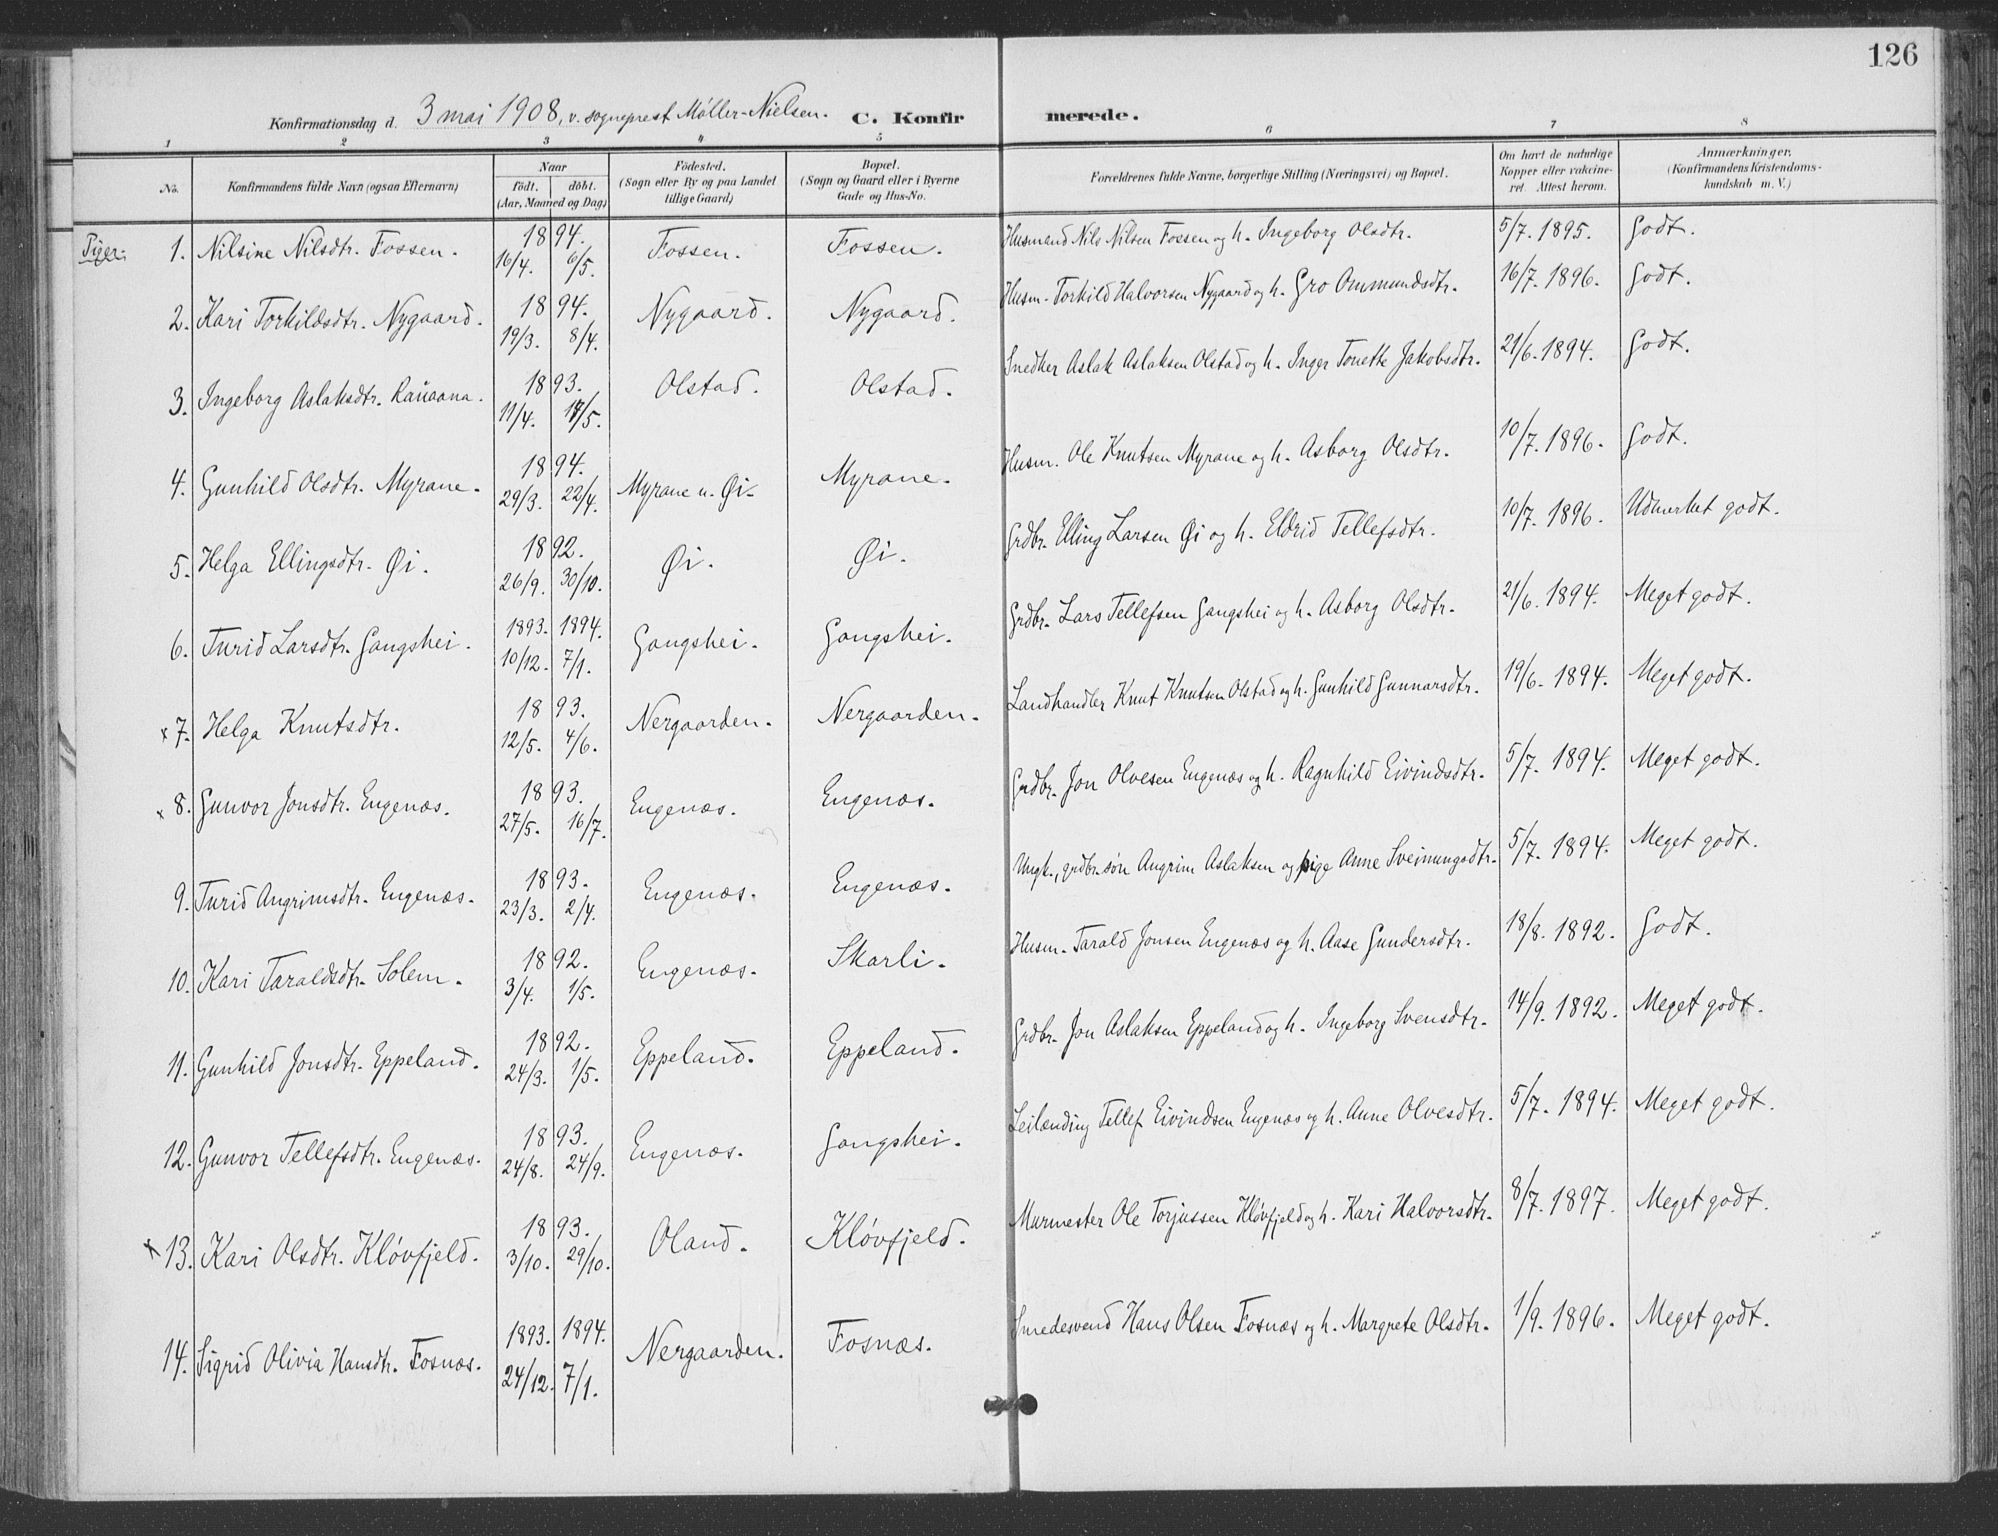 126
Konfirmationsdag d. 3 mai 1908, v. sogneprest Møller-Nielsen. C. Konfirmerede.
1 2 3 4 5 6 7 8
No. Konfirmandens fulde Navn (ogsaa Efternavn) Naar födt. döbt. (Aar, Maaned og Dag) Födested. (Sogn eller By og paa Landet tillige Gaard) Bopæl. (Sogn og Gaard eller i Byerne Gade og Hus-No. Forældrenes fulde Navne, borgerlige Stilling (Næringsvei) og Bopæl. Om havt de naturlige Kopper eller vakcineret. Attest herom. Anmærkninger. (Konfirmandens Kristendomskundskab m. V.)
Piger:
1. Nilsine Nilsdtr. Fossen. 1894. 16/4. 6/5. Fossen. Fossen. Husmand Nils Nilsen Fossen og h. Ingeborg Olsdtr. 5/7. 1895. Godt.
2. Kari Torkildsdtr. Nygaard. 1894. 19/3. 8/4. Nygaard. Nygaard. Husm. Torkild Halvorsen Nygaard og h. Gro Ommundsdtr. 16/7. 1896. Godt.
3. Ingeborg Aslaksdtr. Rauaana. 1893. 11/4. /5. Olstad. Olstad. Snedker Aslak Aslaksen Olstad og h. Inger Tonette Jakobsdtr. 21/6. 1894. Godt.
4. Gunhild Olsdtr. Myrane. 1894. 29/3. 22/4. Myrane u. Øi. Myrane. Husm. Ole Knutsen Myrane og h. Asborg Olsdtr. 10/7. 1896. Godt.
5. Helga Ellingsdtr. Øi. 1892. 26/9. 30/10. Øi. Øi. Grdbr. Elling Larsen Øi og h. Eldrid Tellefsdtr. 10/7. 1896. Udmerket godt.
6. Turid Larsdtr. Gangshei. 1893. 1894. 10/12. 7/1. Gangshei. Gangshei. Grdbr. Lars Tellefsen Gangshei og h. Asborg Olsdtr. 21/6. 1894. Meget godt.
x 7. Helga Knutsdtr. 1893. 12/5. 4/6. Nergaarden. Nergaarden. Landhandler Knut Knutsen Olstad og h. Gunhild Gunnarsdtr. 19/6. 1894. Meget godt.
x 8. Gunvor Jonsdtr. Engenæs. 1893. 27/5. 16/7. Engenæs. Engenæs. Grdbr. Jon Olvesen Engenæs og h. Ragnhild Eivindsdtr. 5/7. 1894. Meget godt.
9. Turid Angrimsdtr. Engenæs. 1893. 23/3. 2/4. Engenæs. Engenæs. Ungk., grdbr.søn Angrim Aslaksen og pige Anne Sveinungsdtr. 5/7. 1894. Meget godt.
10. Kari Taraldsdtr. Solem. 1892. 3/4. 1/5. Engenæs. Skarli. Husm. Tarald Jonsen Engenæs og h. Aase Gundersdtr. 18/8. 1892. Godt.
11. Gunhild Jonsdtr. Eppeland. 1892. 24/3. 1/5. Eppeland. Eppeland. Grdbr. Jon Aslaksen Eppeland og h. Ingeborg Svensdtr. 14/9. 1892. Meget godt.
12. Gunvor Tellefsdtr. Engenæs. 1893. 24/8. 24/9. Engenæs. Gangshei. Leilænding Tellef Eivindsen Engenæs og h. Anne Olvesdtr. 5/7. 1894. Meget godt.
x 13. Kari Olsdtr. Kløvfjeld. 1893. 3/10. 29/10. Oland. Kløvfjeld. Murmester Ole Torjussen Kløvfjeld og h. Kari Halvorsdtr. 8/7. 1897. Meget godt.
14. Sigrid Olivia Hansdtr. Fosnæs. 1893. 1894. 24/12. 7/1. Nergaarden. Fosnæs. Smedesvend Hans Olsen Fosnæs og h. Margrete Olsdtr. 1/9. 1896. Meget godt.